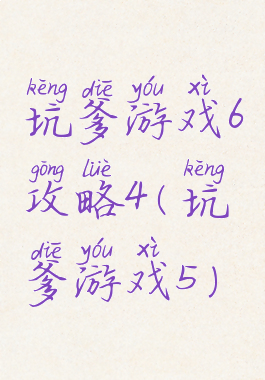 kēng diē yóu xì
坑爹游戏6
gōng lüè kēng
攻略4(坑
diē yóu xì
爹游戏5)